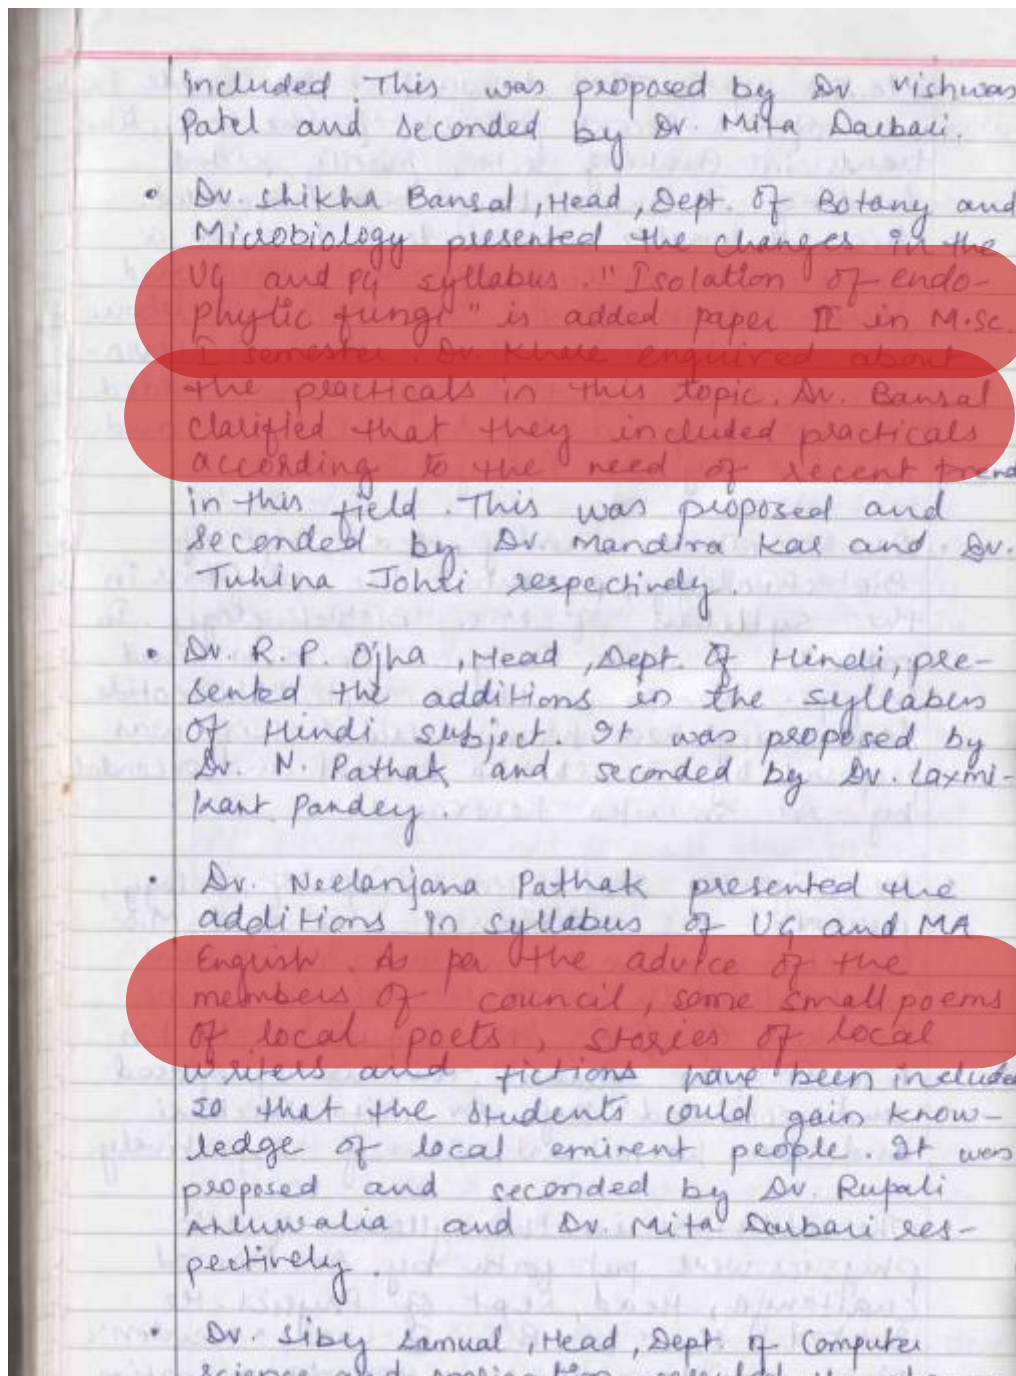 included. This was proposed by Dr. Vishwas
Patel and seconded by Dr. Mita Darbari.
• Dr. Shikha Bansal, Head, Dept. of Botany and
Microbiology presented the changes in the
UG and PG syllabus. "Isolation of endo-
phytic fungi" is added paper II in M.Sc.
I semester. Dr. Khare enquired about
the practicals in this topic. Dr. Bansal
clarified that they included practicals
according to the need of recent trend
in this field. This was proposed and
seconded by Dr Mandira Kar and Dr.
Tuhina Johri respectively.
• Dr. R. P. Ojha, Head, Dept. of Hindi, pre-
sented the additions in the syllabus
of Hindi subject. It was proposed by
Dr. N. Pathak and seconded by Dr. Laxmi-
kant Pandey.
• Dr. Neelanjana Pathak presented the
additions in syllabus of UG and MA
English. As per the advice of the
members of council, some small poems
of local poets, stories of local
writers and fictions have been include
so that the students could gain know-
ledge of local eminent people. It was
proposed and seconded by Dr. Rupali
Ahluwalia and Dr. Mita Darbari res-
pectively.
• Dr. Siby Samual, Head, Dept. of Computer
science and